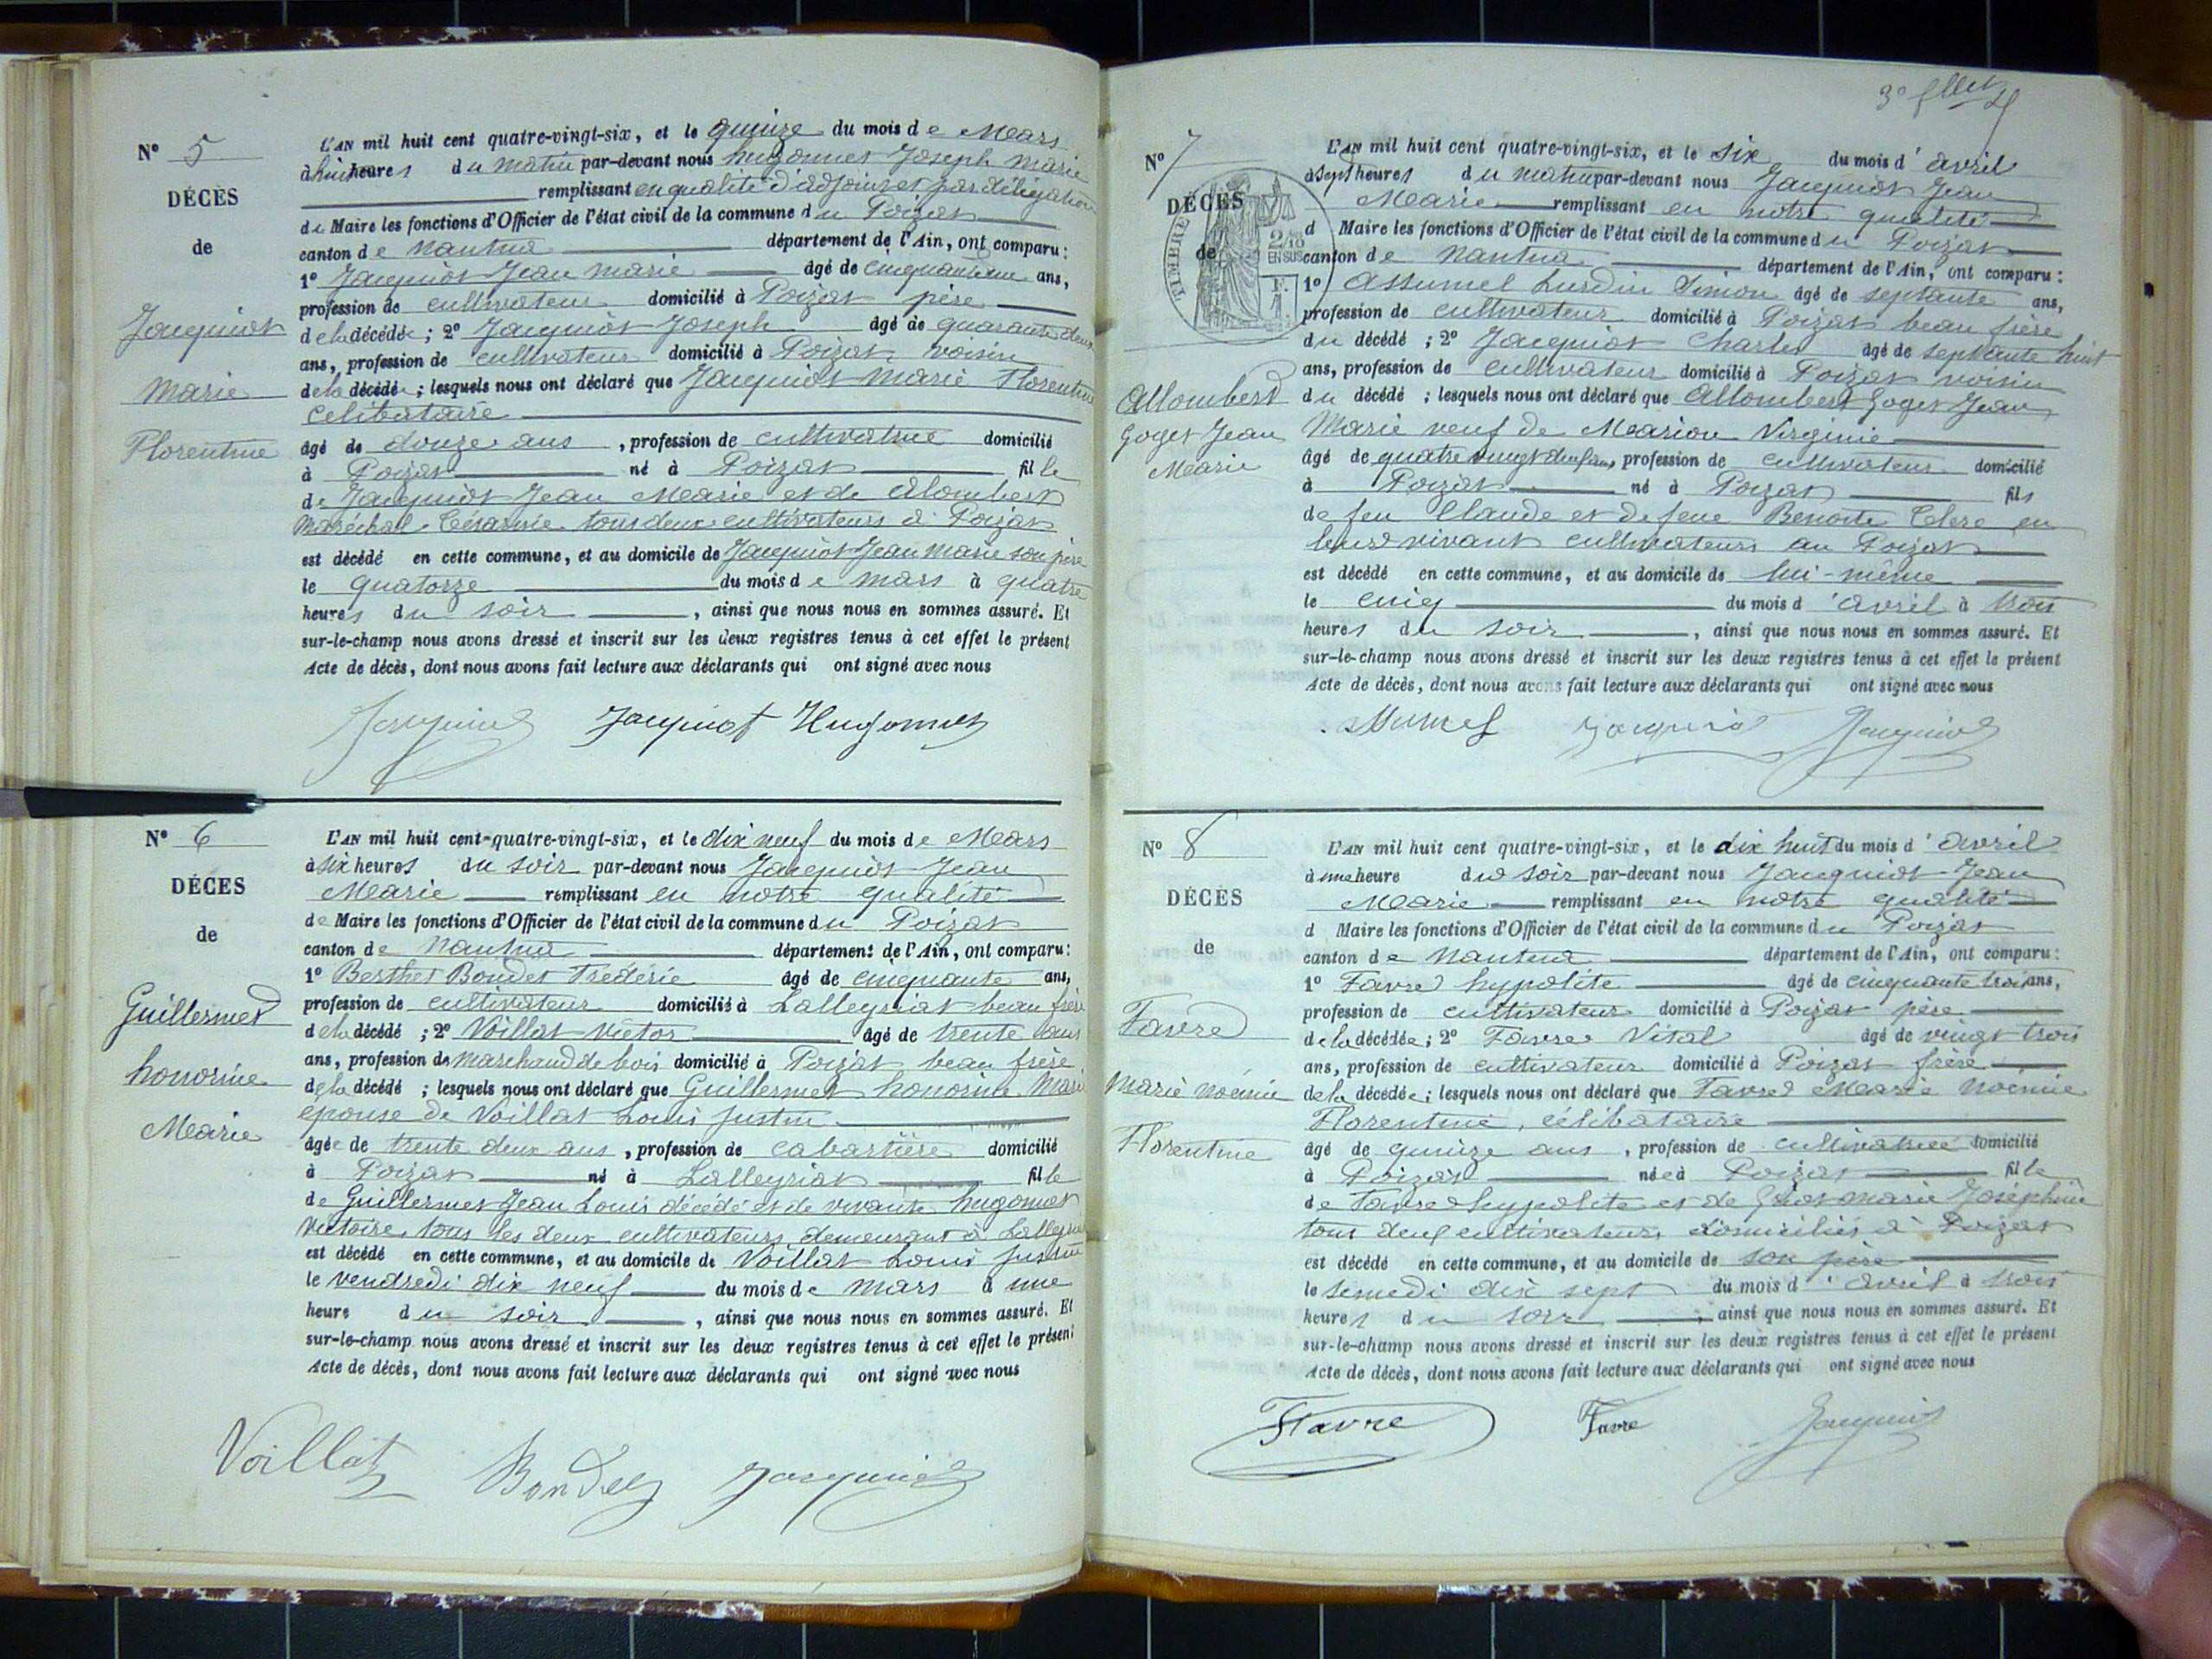 N° 5
DÉCÈS
de
Jacquiot
Marie
Florentine
L'AN mil huit cent quatre-vingt-six, et le quinze du mois de Mars
à huit heures du matin par-devant nous hugonnet Joseph Marie
remplissant en qualité d'adjoint et par délégation
de Maire les fonctions d'Officier de l'état civil de la commune du Poizat
canton de Nantua département de l'Ain, ont comparu :
1° Jacquiot Jean Marie âgé de cinquante ans,
profession de cultivateur domicilié à Poizat père
de la décédée ; 2° Jacquiot Joseph âgé de quarante deux
ans, profession de cultivateur domicilié à Poizat voisin
de la décédée ; lesquels nous ont déclaré que Jacquiot Marie Florentine
celibataire
âgé de douze ans, profession de cultivatrice domicilié
à Poizat né à Poizat fille
de Jacquiot Jean Marie et de Alombert
Maréchal Césarine tous deux cultivateurs à Poizat
est décédé en cette commune, et au domicile de Jacquiot Jean Marie son père
le quatorze du mois de mars à quatre
heures du soir, ainsi que nous nous en sommes assuré. Et
sur-le-champ nous avons dressé et inscrit sur les deux registres tenus à cet effet le présent
Acte de décès, dont nous avons fait lecture aux déclarants qui ont signé avec nous
Jacquiot Jacquiot Hugonnet
N° 6
DÉCÈS
de
Guillermet
honorine
Marie
L'AN mil huit cent-quatre-vingt-six, et le dix neuf du mois de Mars
à six heures du soir par-devant nous Jacquiot Jean
Marie remplissant en notre qualité
de Maire les fonctions d'Officier de l'état civil de la commune du Poizat
canton de Nantua département de l'Ain, ont comparu :
1° Berthet Bondet Frédéric âgé de cinquante ans,
profession de cultivateur domicilié à Lalleyriat beau frère
de la décédé ; 2° Voillat Victor âgé de trente ans
ans, profession de marchand de bois domicilié à Poizat beau frère
de la décédé ; lesquels nous ont déclaré que Guillermet honorine Marie
épouse de Voillat Louis Justin
âgée de trente deux ans, profession de cabartière domicilié
à Poizat né à Lalleyriat fille
de Guillermet Jean Louis décédé et de vivante hugonnet
Victoire tous les deux cultivateurs demeurant à Lalleyriat
est décédé en cette commune, et au domicile de Voillat Louis Justin
le vendredi dix neuf du mois de mars à une
heure du soir, ainsi que nous nous en sommes assuré. Et
sur-le-champ nous avons dressé et inscrit sur les deux registres tenus à cet effet le présent
Acte de décès, dont nous avons fait lecture aux déclarants qui ont signé avec nous
Voillat Bondet Jacquiot
3e fllet
N° 7
DÉCÈS
de
TIMBRE
2/10
EN SUS
Allombert
Goget Jean
Marie
L'AN mil huit cent quatre-vingt-six, et le six du mois d'avril
à sept heures du matin par-devant nous Jacquiot Jean
Marie remplissant en notre qualité
d Maire les fonctions d'Officier de l'état civil de la commune du Poizat
canton de Nantua département de l'Ain, ont comparu :
1° Assumel Lurdin Simon âgé de septante ans,
profession de cultivateur domicilié à Poizat beau frère
du décédé ; 2° Jacquiot Charles âgé de septante huit
ans, profession de cultivateur domicilié à Poizat voisin
du décédé ; lesquels nous ont déclaré que Allombert Goget Jean
Marie veuf de Marion Virginie
âgé de quatre vingt deux ans, profession de cultivateur domicilié
à Poizat né à Poizat fils
de feu Claude et de feue Benoite Clerc en
leur vivant cultivateurs au Poizat
est décédé en cette commune, et au domicile de lui-même
le cinq du mois d'avril à trois
heures du soir, ainsi que nous nous en sommes assuré. Et
sur-le-champ nous avons dressé et inscrit sur les deux registres tenus à cet effet le présent
Acte de décès, dont nous avons fait lecture aux déclarants qui ont signé avec nous
Assumel Jacquiot Jacquiot
N° 8
DÉCÈS
de
Favre
Marie Noémie
Florentine
L'AN mil huit cent quatre-vingt-six, et le dix huit du mois d'avril
à une heure du soir par-devant nous Jacquiot Jean
Marie remplissant en notre qualité
d Maire les fonctions d'Officier de l'état civil de la commune du Poizat
canton de Nantua département de l'Ain, ont comparu :
1° Favre hypolite âgé de cinquante trois ans,
profession de cultivateur domicilié à Poizat père
de la décédée ; 2° Favre Vital âgé de vingt trois
ans, profession de cultivateur domicilié à Poizat frère
de la décédée ; lesquels nous ont déclaré que Favre Marie Noémie
Florentine, célibataire
âgé de quinze ans, profession de cultivatrice domicilié
à Poizat née à Poizat fille
de Favre hypolite et de Marie Joséphine
tous deux cultivateurs domiciliés à Poizat
est décédé en cette commune, et au domicile de son père
le samedi dix sept du mois d'avril à trois
heures du soir ainsi que nous nous en sommes assuré. Et
sur-le-champ nous avons dressé et inscrit sur les deux registres tenus à cet effet le présent
Acte de décès, dont nous avons fait lecture aux déclarants qui ont signé avec nous
Favre Favre Jacquiot